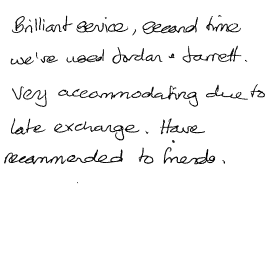 Brilliant service, second time
we've used Jordan & Jarrett.
Very accommodating due to
late exchange. Have
recommended to friends.